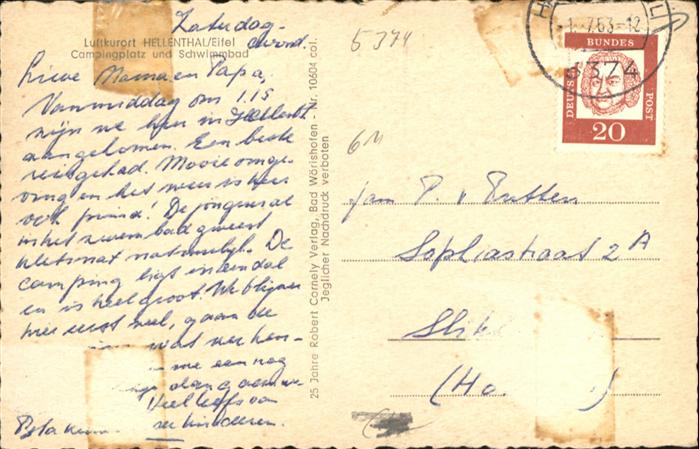 Zaterdag-
avond.
Luftkurort HELLENTHAL/Eifel
Campingplatz und Schwimmbad
Lieve Mama en Papa,
Vanmiddag om 1.15
zijn we hier in Hellenth.
aangekomen. Een beste
reis gehad. Mooie omge-
ving en het weer is hier
ook prima! De jongens al
in het zwembad geweest
kletsnat natuurlijk. De
camping ligt in een dal
en is heel groot. We blijven
hier eerst wel, gaan
wat
we een nog
Veel liefs van
kinderen.
25 Jahre Robert Cornely Verlag, Bad Wörishofen - Nr. 10604 col.
Jeglicher Nachdruck verboten
5374
-1.-7.63-12
5374
DEUTSCHE
BUNDES
POST
20
fam P. v
Sophiastraat 2A
(Ho )